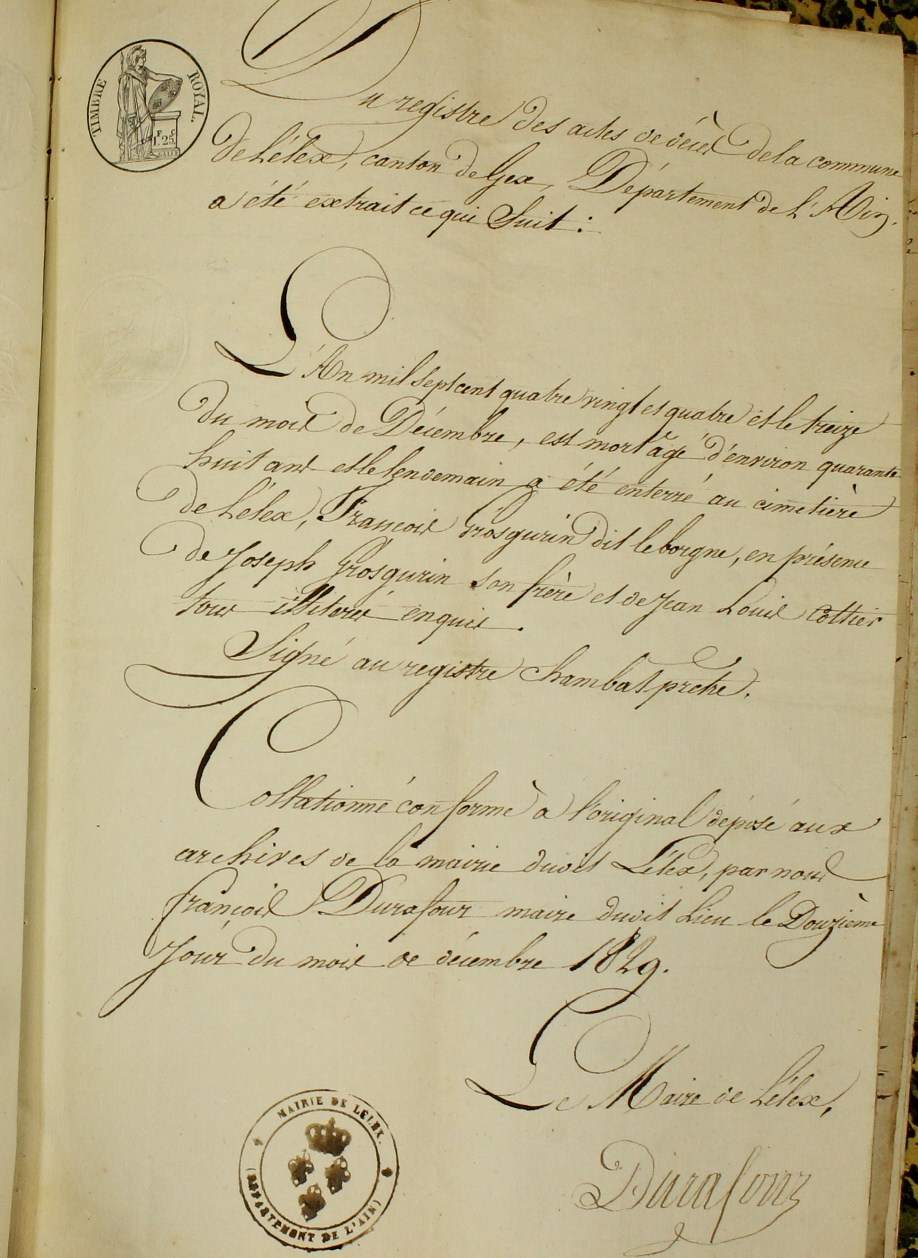 TIMBRE ROYAL.
1.F 25.C
Du registre des actes de décès de la commune
de Lélex, canton de Gex, Département de L'Ain,
a été extrait ce qui Suit :
L'An mil Sept cent quatre vingt et quatre et le treize
du mois de Décembre, est mort âgé d'environ quarante
huit ans et le lendemain a été enterré au cimetière
de Lélex, François Grosgurin dit le borgne, en présence
de Joseph Grosgurin son frère et de Jean Louis Cottier
tous illiterés enquis.
Signé au registre Chambat prêtre.
Collationné conforme à l'original déposé aux
archives de la mairie dudit Lélex, par nous
françois Durafour maire dudit Lieu le Douzième
Jour du mois de décembre 1829.
Le Maire de Lélex,
Durafour
MAIRIE DE LELEX.
(DEPARTEMENT DE L'AIN)